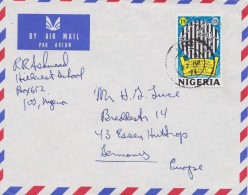 BY AIR MAIL
PAR AVION
NIGERIA
R R Ashmead
Hillcrest School
Box 652
Jos, Nigeria
Mr H J Luce
Bredlestr 14
43 Essen Huttrop
Germany
Europe